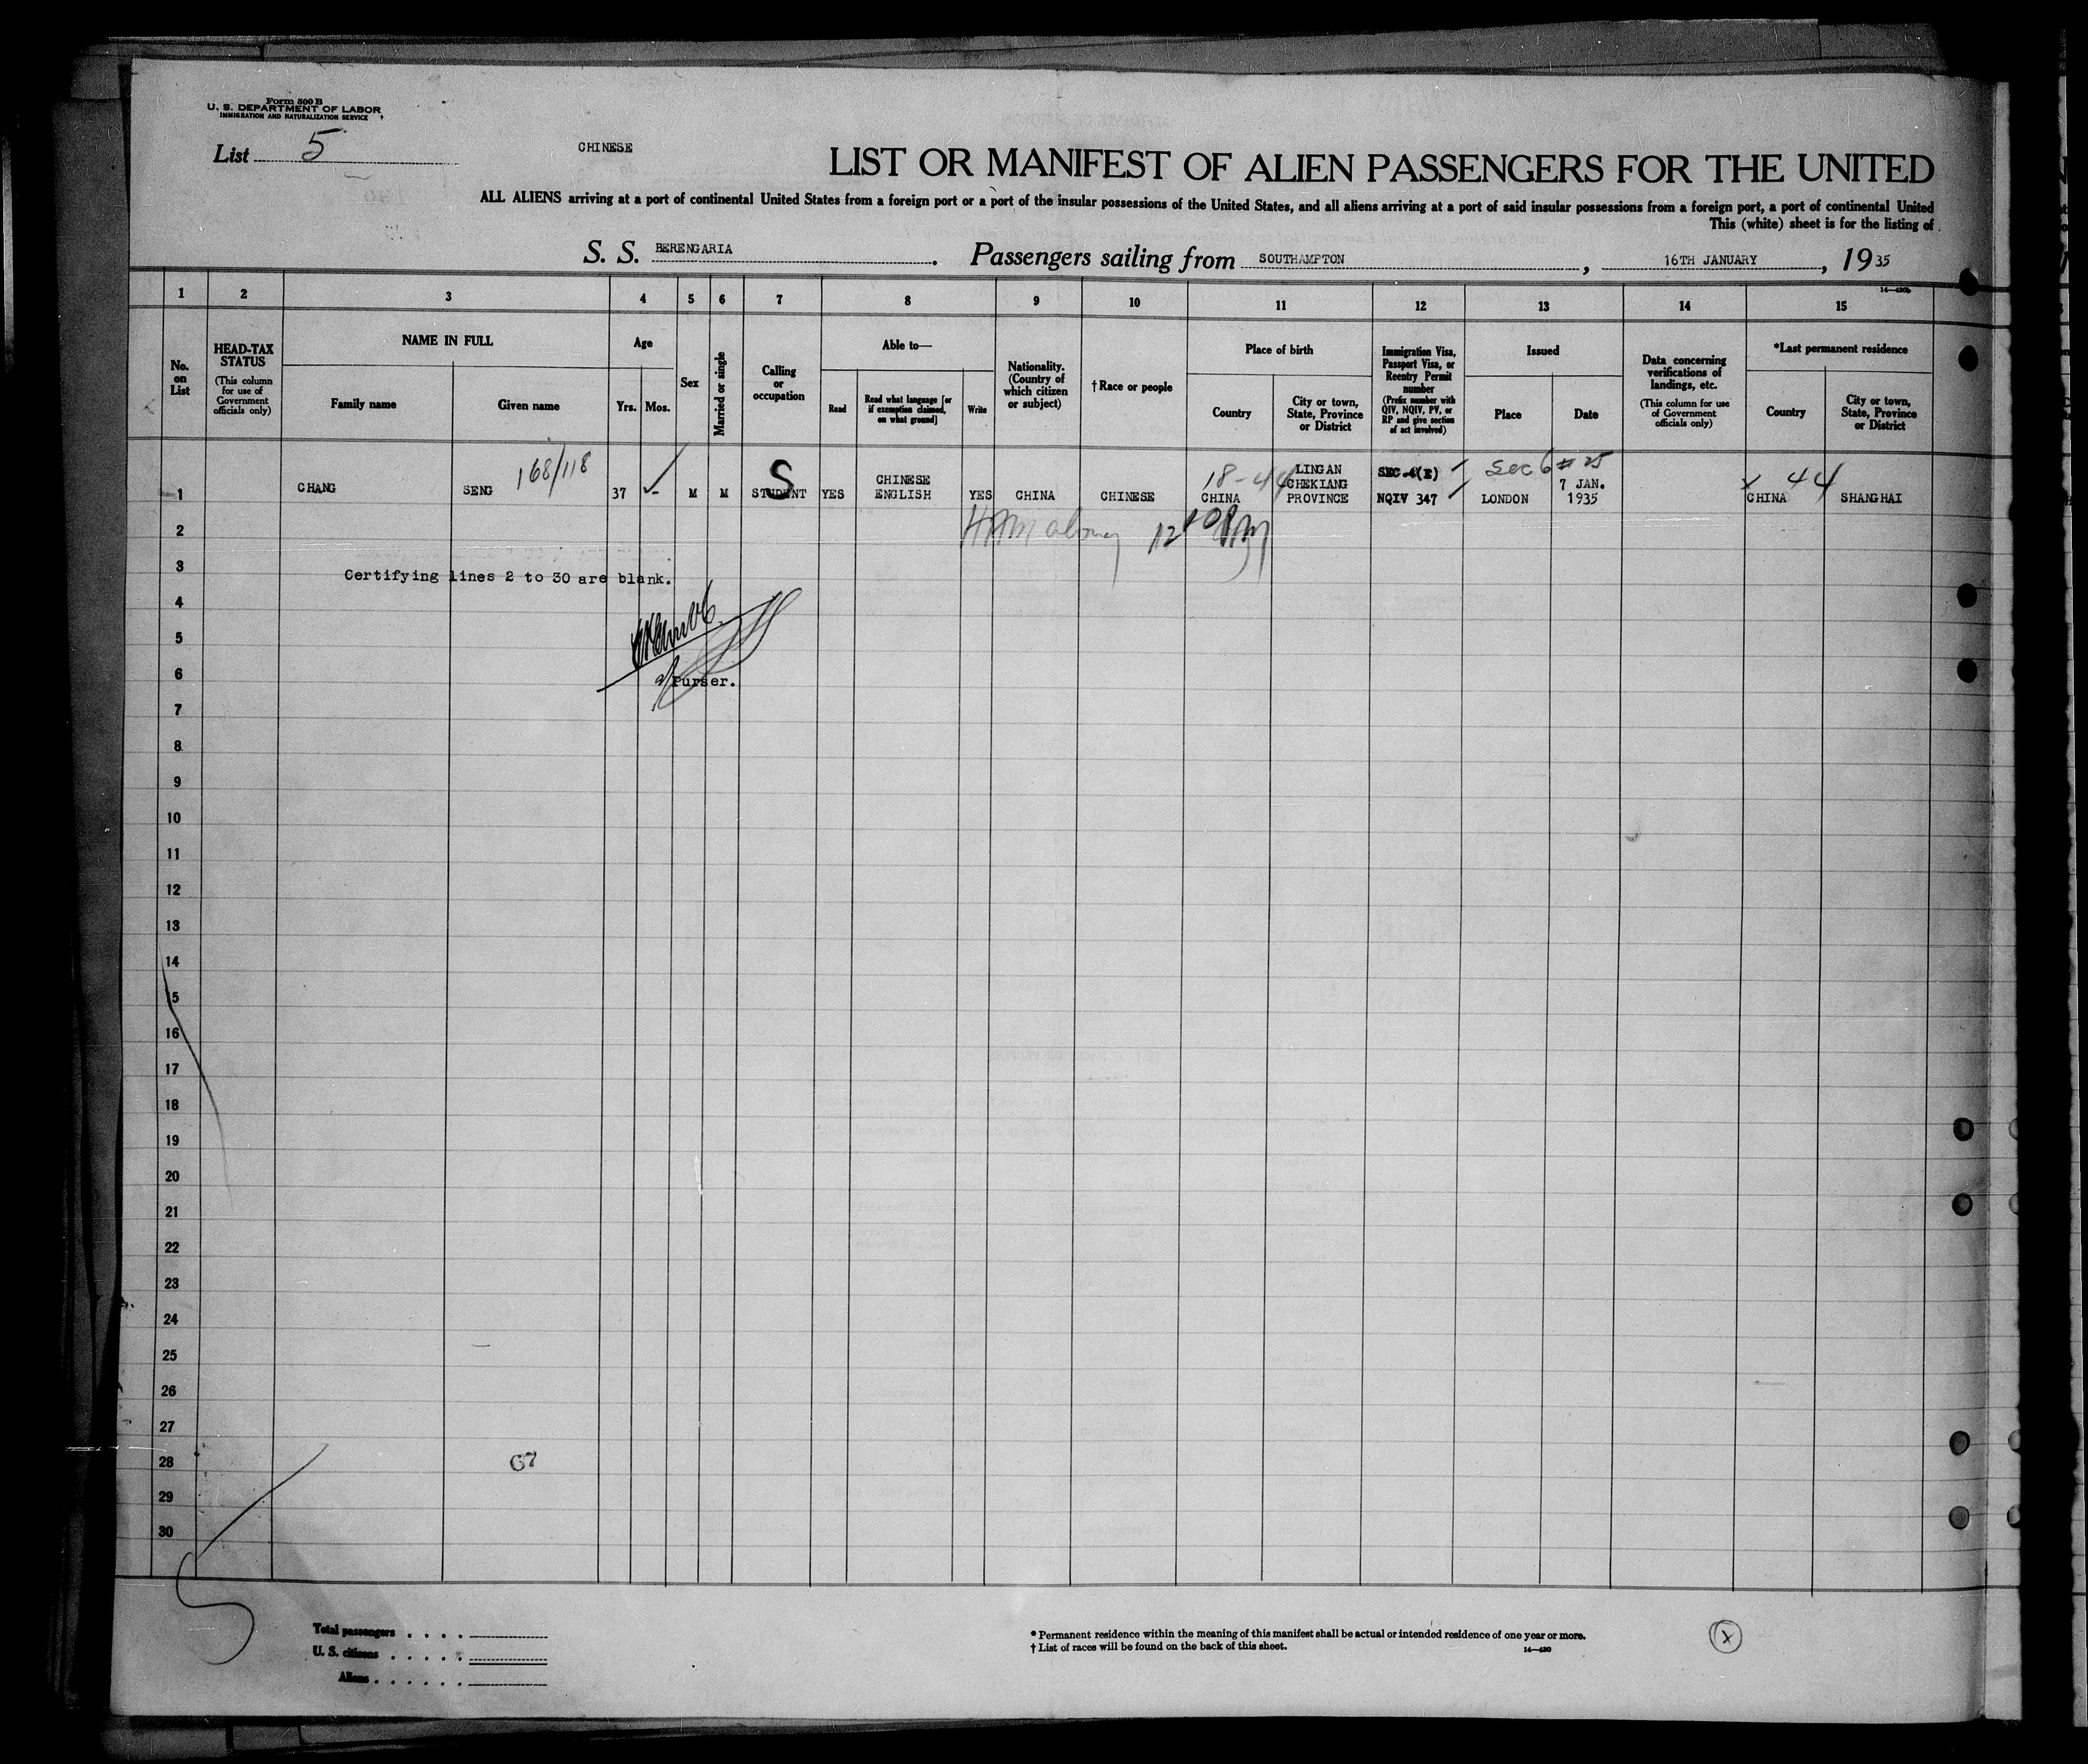 Form 500 B
U. S. DEPARTMENT OF LABOR
IMMIGRATION AND NATURALIZATION SERVICE
List 5
CHINESE
LIST OR MANIFEST OF ALIEN PASSENGERS FOR THE UNITED
ALL ALIENS arriving at a port of continental United States from a foreign port or a port of the insular possessions of the United States, and all aliens arriving at a port of said insular possessions from a foreign port, a port of continental United
This (white) sheet is for the listing of
S. S. BERENGARIA. Passengers sailing from SOUTHAMPTON, 16TH JANUARY, 1935
1 2 3 4 5 6 7 8 9 10 11 12 13 14 15
No. on List
HEAD-TAX STATUS
(This column for use of Government officials only)
NAME IN FULL
Family name
Given name
Age
Yrs. Mos.
Sex
Married or single
Calling or occupation
Able to—
Read
Read what language [or if exemption claimed, on what ground]
Write
Nationality. (Country of which citizen or subject)
† Race or people
Place of birth
Country
City or town, State, Province or District
Immigration Visa, Passport Visa, or Reentry Permit number
(Prefix number with QIV, NQIV, PV, or RP and give section of act involved)
Issued
Place
Date
Data concerning verifications of landings, etc.
(This column for use of Government officials only)
*Last permanent residence
Country
City or town, State, Province or District
168/118
S
18-44
SEC 4(E)
Sec 6 # 25
44
1 CHANG SENG 37 - M M STUDENT YES CHINESE ENGLISH YES CHINA CHINESE CHINA LINGAN CHEKIANG PROVINCE NQIV 347 LONDON 7 JAN. 1935 CHINA SHANGHAI
2
3
Certifying lines 2 to 30 are blank.
4
5
6
Purser.
7
8
9
10
11
12
13
14
15
16
17
18
19
20
21
22
23
24
25
26
27
28
67
29
30
Total passengers
U. S. citizens
Aliens
* Permanent residence within the meaning of this manifest shall be actual or intended residence of one year or more.
† List of races will be found on the back of this sheet.
14—430
X